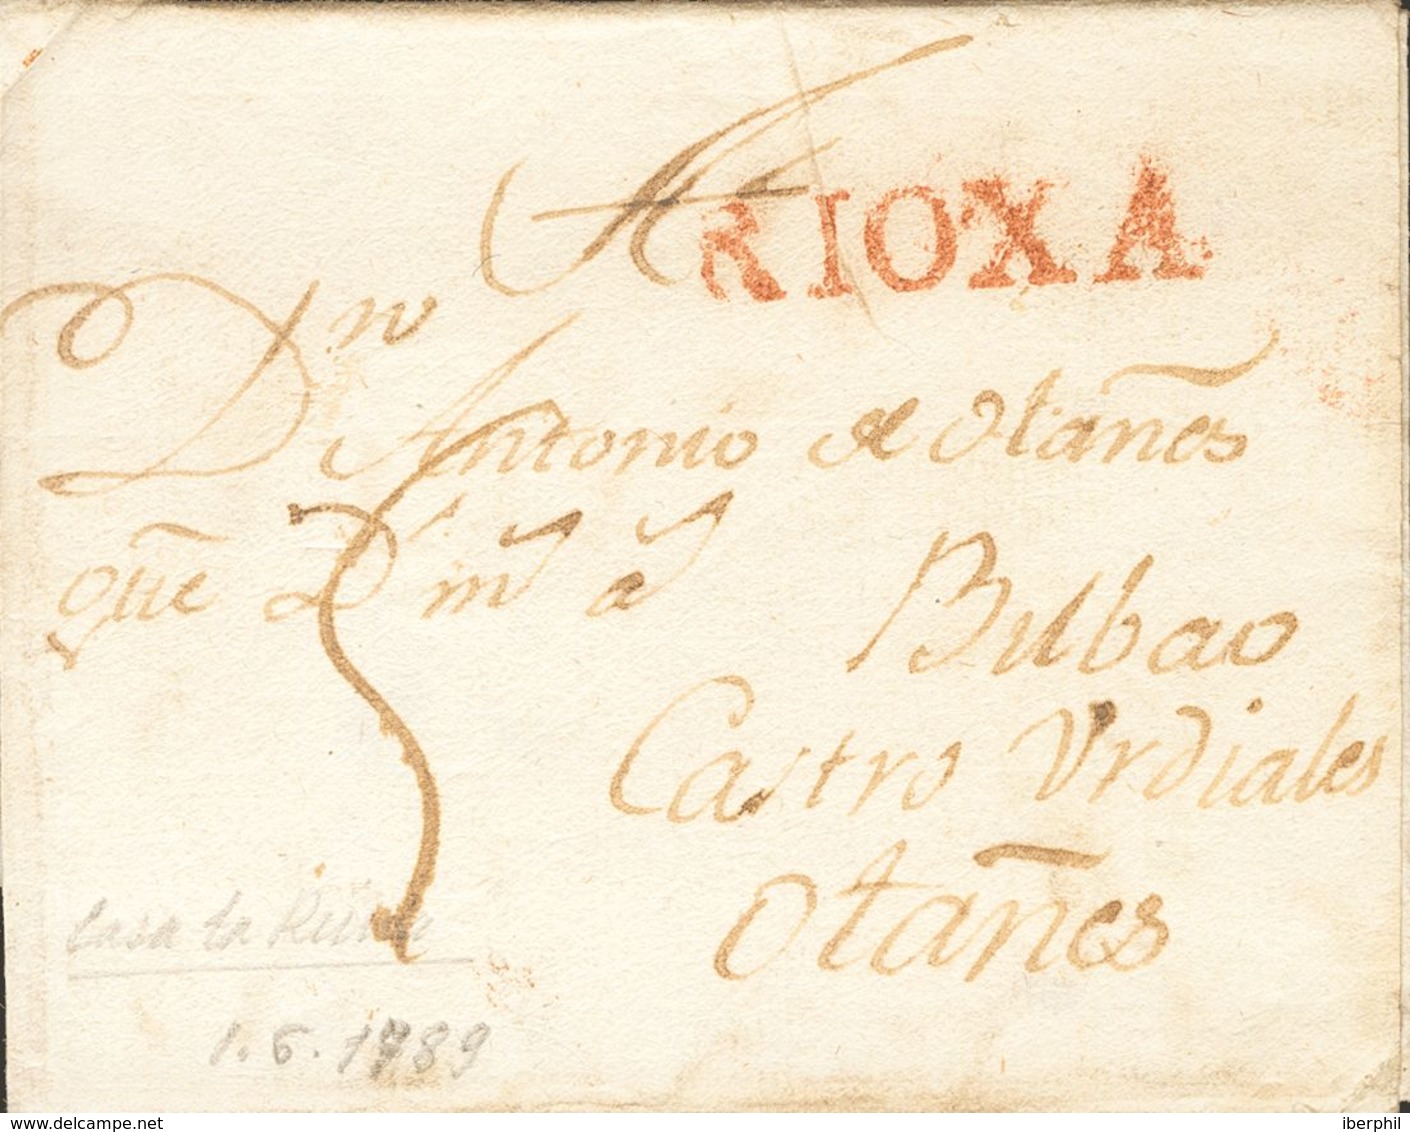 A
RIOXA
Dn
Antonio de Otañes
que Ds
Bilbao
Castro Urdiales
Otañes
5
Casa la
1.6.1789
www.delcampe.net
iberphil